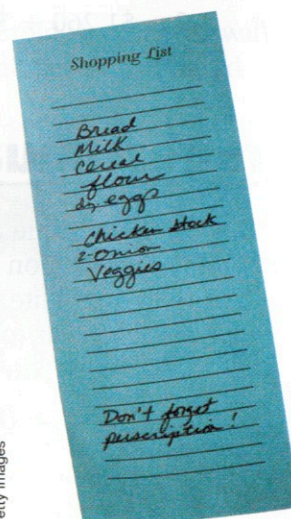 Shopping List
Bread
Milk
Cereal
flour
dz eggs
Chicken Stock
2-Onion
Veggies
Don't forget
perscription!
etty Images